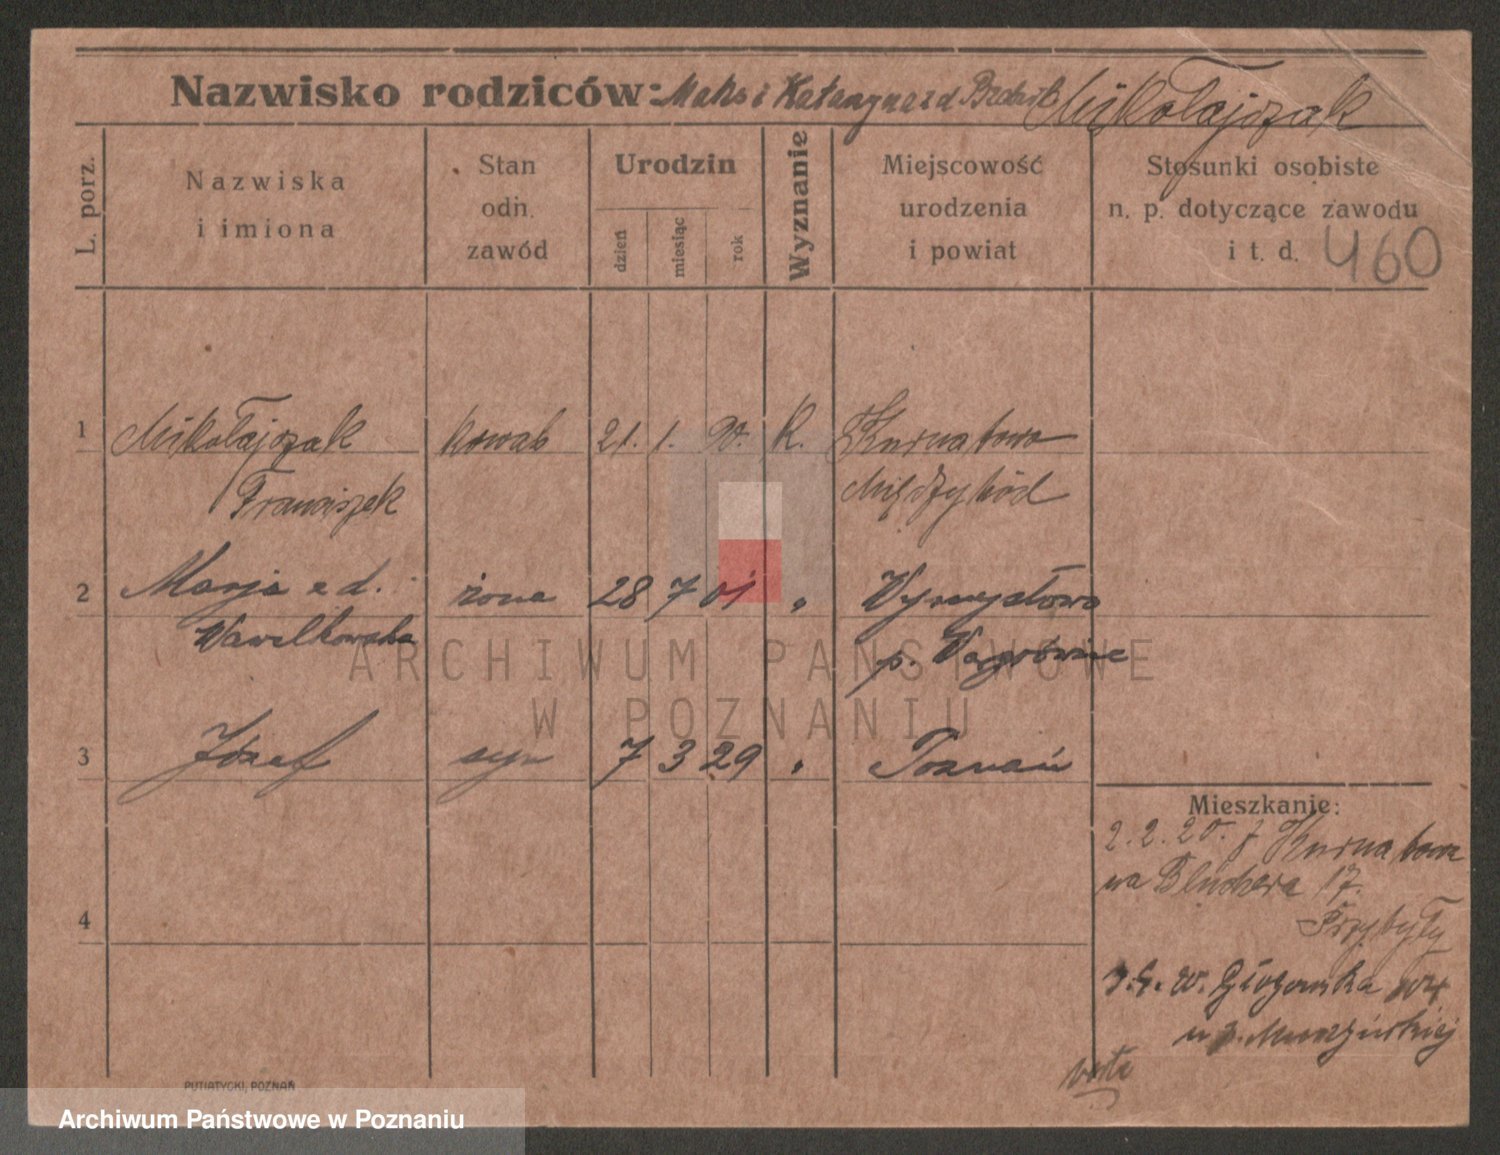 Nazwisko rodziców: Maks i Katarzyna z d. Mikołajczak
L. porz.
Nazwiska
i imiona
Stan
odn.
zawód
Urodzin
dzień
miesiąc
rok
Wyznanie
Miejscowość
urodzenia
i powiat
Stosunki osobiste
n. p. dotyczące zawodu
i t. d. 460
1 Mikołajczak kowal 21. 1. K. Kurnatowo
Franciszek Międzychód
2 Marja z d. żona 28 7 01 " Wymysłowo
Wawelkowska p. Wągrowiec
3 Józef syn 7 3 29 " Poznań
Mieszkanie:
2. 2. 20. z Kurnatowa
na Bluchera 17.
4
Przybyły
Głogowska
u p. Murzyńskiej
verte
PUTIATYCKI, POZNAŃ
ARCHIWUM PAŃSTWOWE
W POZNANIU
Archiwum Państwowe w Poznaniu